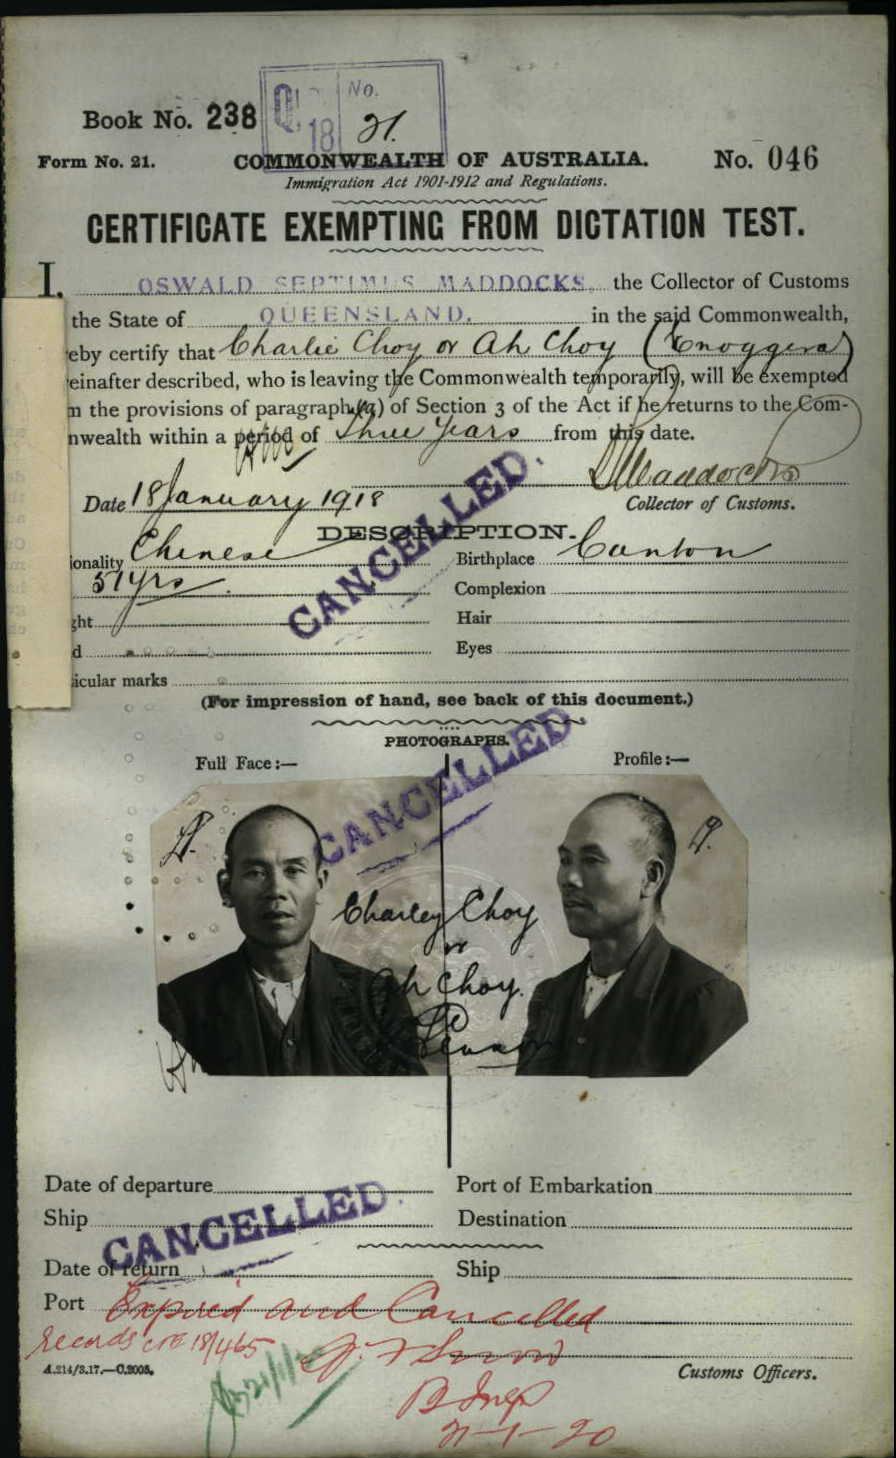 Book No. 238
No.
Q
18
21.
Form No. 21. COMMONWEALTH OF AUSTRALIA. No. 046
Immigration Act 1901-1912 and Regulations.
CERTIFICATE EXEMPTING FROM DICTATION TEST.
I, OSWALD SEPTIMUS MADDOCKS, the Collector of Customs
the State of QUEENSLAND, in the said Commonwealth,
eby certify that Charlie Choy or Ah Choy (Enoggera)
einafter described, who is leaving the Commonwealth temporarily, will be exempted
m the provisions of paragraph (a) of Section 3 of the Act if he returns to the Com-
nwealth within a period of three years from this date.
OSMaddocks
Date 18 January 1918 Collector of Customs.
CANCELLED.
DESCRIPTION.
ionality Chinese Birthplace Canton
51 yrs. Complexion
ght Hair
d Eyes
icular marks
(For impression of hand, see back of this document.)
PHOTOGRAPHS.
CANCELLED
Full Face:— Profile:—
Charley Choy
or
Ah Choy.
Date of departure Port of Embarkation
Ship Destination
CANCELLED.
Date of return Ship
Port Expired and Cancelled
Records CTE 18/465
A.214/3.17.—C.2005. Customs Officers.
B Insp
21-1-20